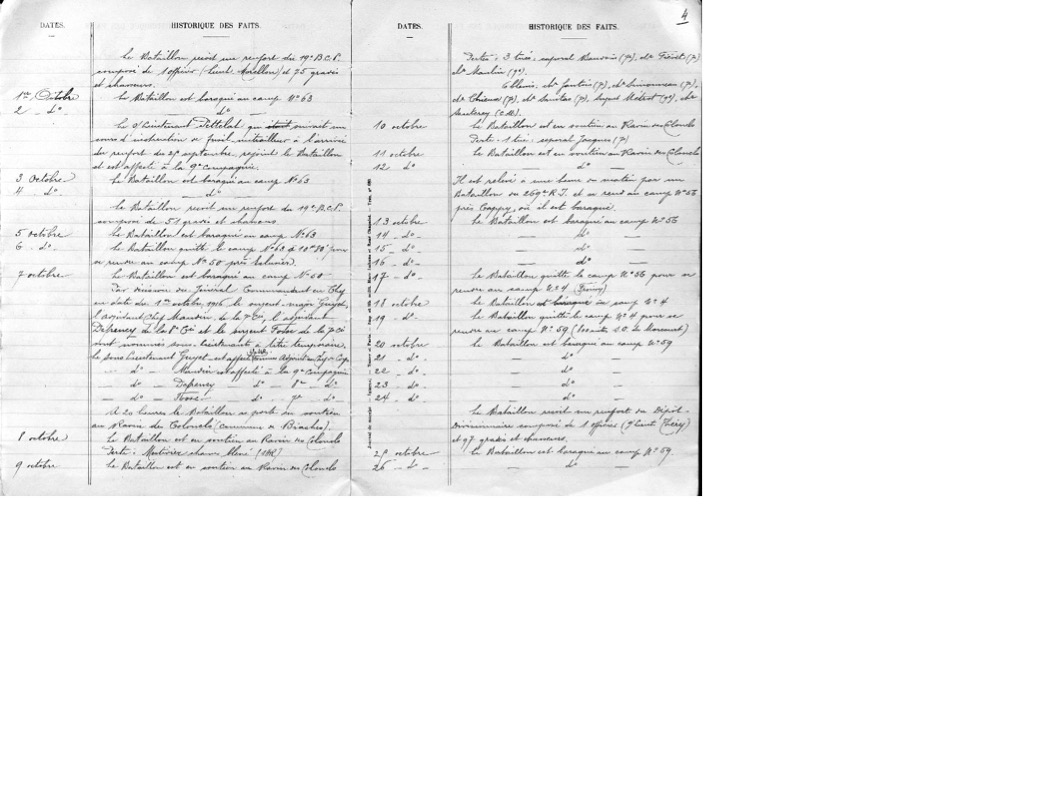 DATES.
HISTORIQUE DES FAITS.
Le Bataillon reçoit un renfort du 19e B.C.P.
composé de 1 officier (Lieut. Morellon) et 75 gradés
et chasseurs.
1er Octobre Le Bataillon est baraqué au camp No 63
2 - do - — do —
Le S/Lieutenant Pettelat qui était suivait un
cours d'instruction de fusil-mitrailleur à l'arrivée
du renfort du 29 septembre, rejoint le Bataillon
et est affecté à la 9e compagnie.
3 Octobre Le Bataillon est baraqué au camp No 63
4 do - — do —
Le Bataillon reçoit un renfort du 19e B.C.P.
composé de 51 gradés et chasseurs
5 octobre Le Bataillon est baraqué au camp No 63
6 - do - Le Bataillon quitte le camp No 63 à 10h30 pour
se rendre au camp No 50 près
7 octobre Le Bataillon est baraqué au camp No 50
Par décision du Général Commandant en Chef
en date du 1er octobre 1916, le sergent-major Guyot,
l'adjudant Chef Mauvin de la 7e Cie, l'adjudant
Defreney de la 8e Cie et le sergent de la 7e Cie
sont nommés sous-lieutenants à titre temporaire.
Le sous Lieutenant Guyot est affecté
— do — Mauvin est affecté à la 9e compagnie
— do — Defreney — do — 8e — do
— do — — do — 7e do
A 20 heures le Bataillon se porte en soutien
au Ravin des Colonels (commune de Biaches).
8 octobre Le Bataillon est en soutien au Ravin des Colonels
Perte :
9 octobre Le Bataillon est en soutien au Ravin des Colonels
4
DATES.
HISTORIQUE DES FAITS.
Pertes : 3 tués, caporal (7e), do (7)
do Maulin (9e).
6 blessés, do (7), do Simonneau (7),
do (7), do (7), (9), do
(C.M.).
10 octobre Le Bataillon est en soutien au Ravin des Colonels
Perte : 1 tué : caporal Jacques (7)
11 octobre Le Bataillon est en soutien au Ravin des Colonels
12 do — do —
Il est relevé à une heure du matin par un
Bataillon du 269e R.I. et se rend au camp No 56
près Cappy, où il est baraqué.
13 octobre Le Bataillon est baraqué au camp No 56
14 - do - — do —
15 - do - — do —
16 - do - — do —
17 - do - Le Bataillon quitte le camp No 56 pour se
rendre au camp No 4
18 octobre Le Bataillon est baraqué au camp No 4
19 - do - Le Bataillon quitte le camp No 4 pour se
rendre au camp No 59
20 octobre Le Bataillon est baraqué au camp No 59
21 - do - — do —
22 - do - — do —
23 - do - — do —
24 - do - — do —
Le Bataillon reçoit un renfort du Dépôt
Divisionnaire composé de 1 officier (S/Lieut Théry)
et 97 gradés et chasseurs.
25 octobre Le Bataillon est baraqué au camp No 59.
26 - do - — do —